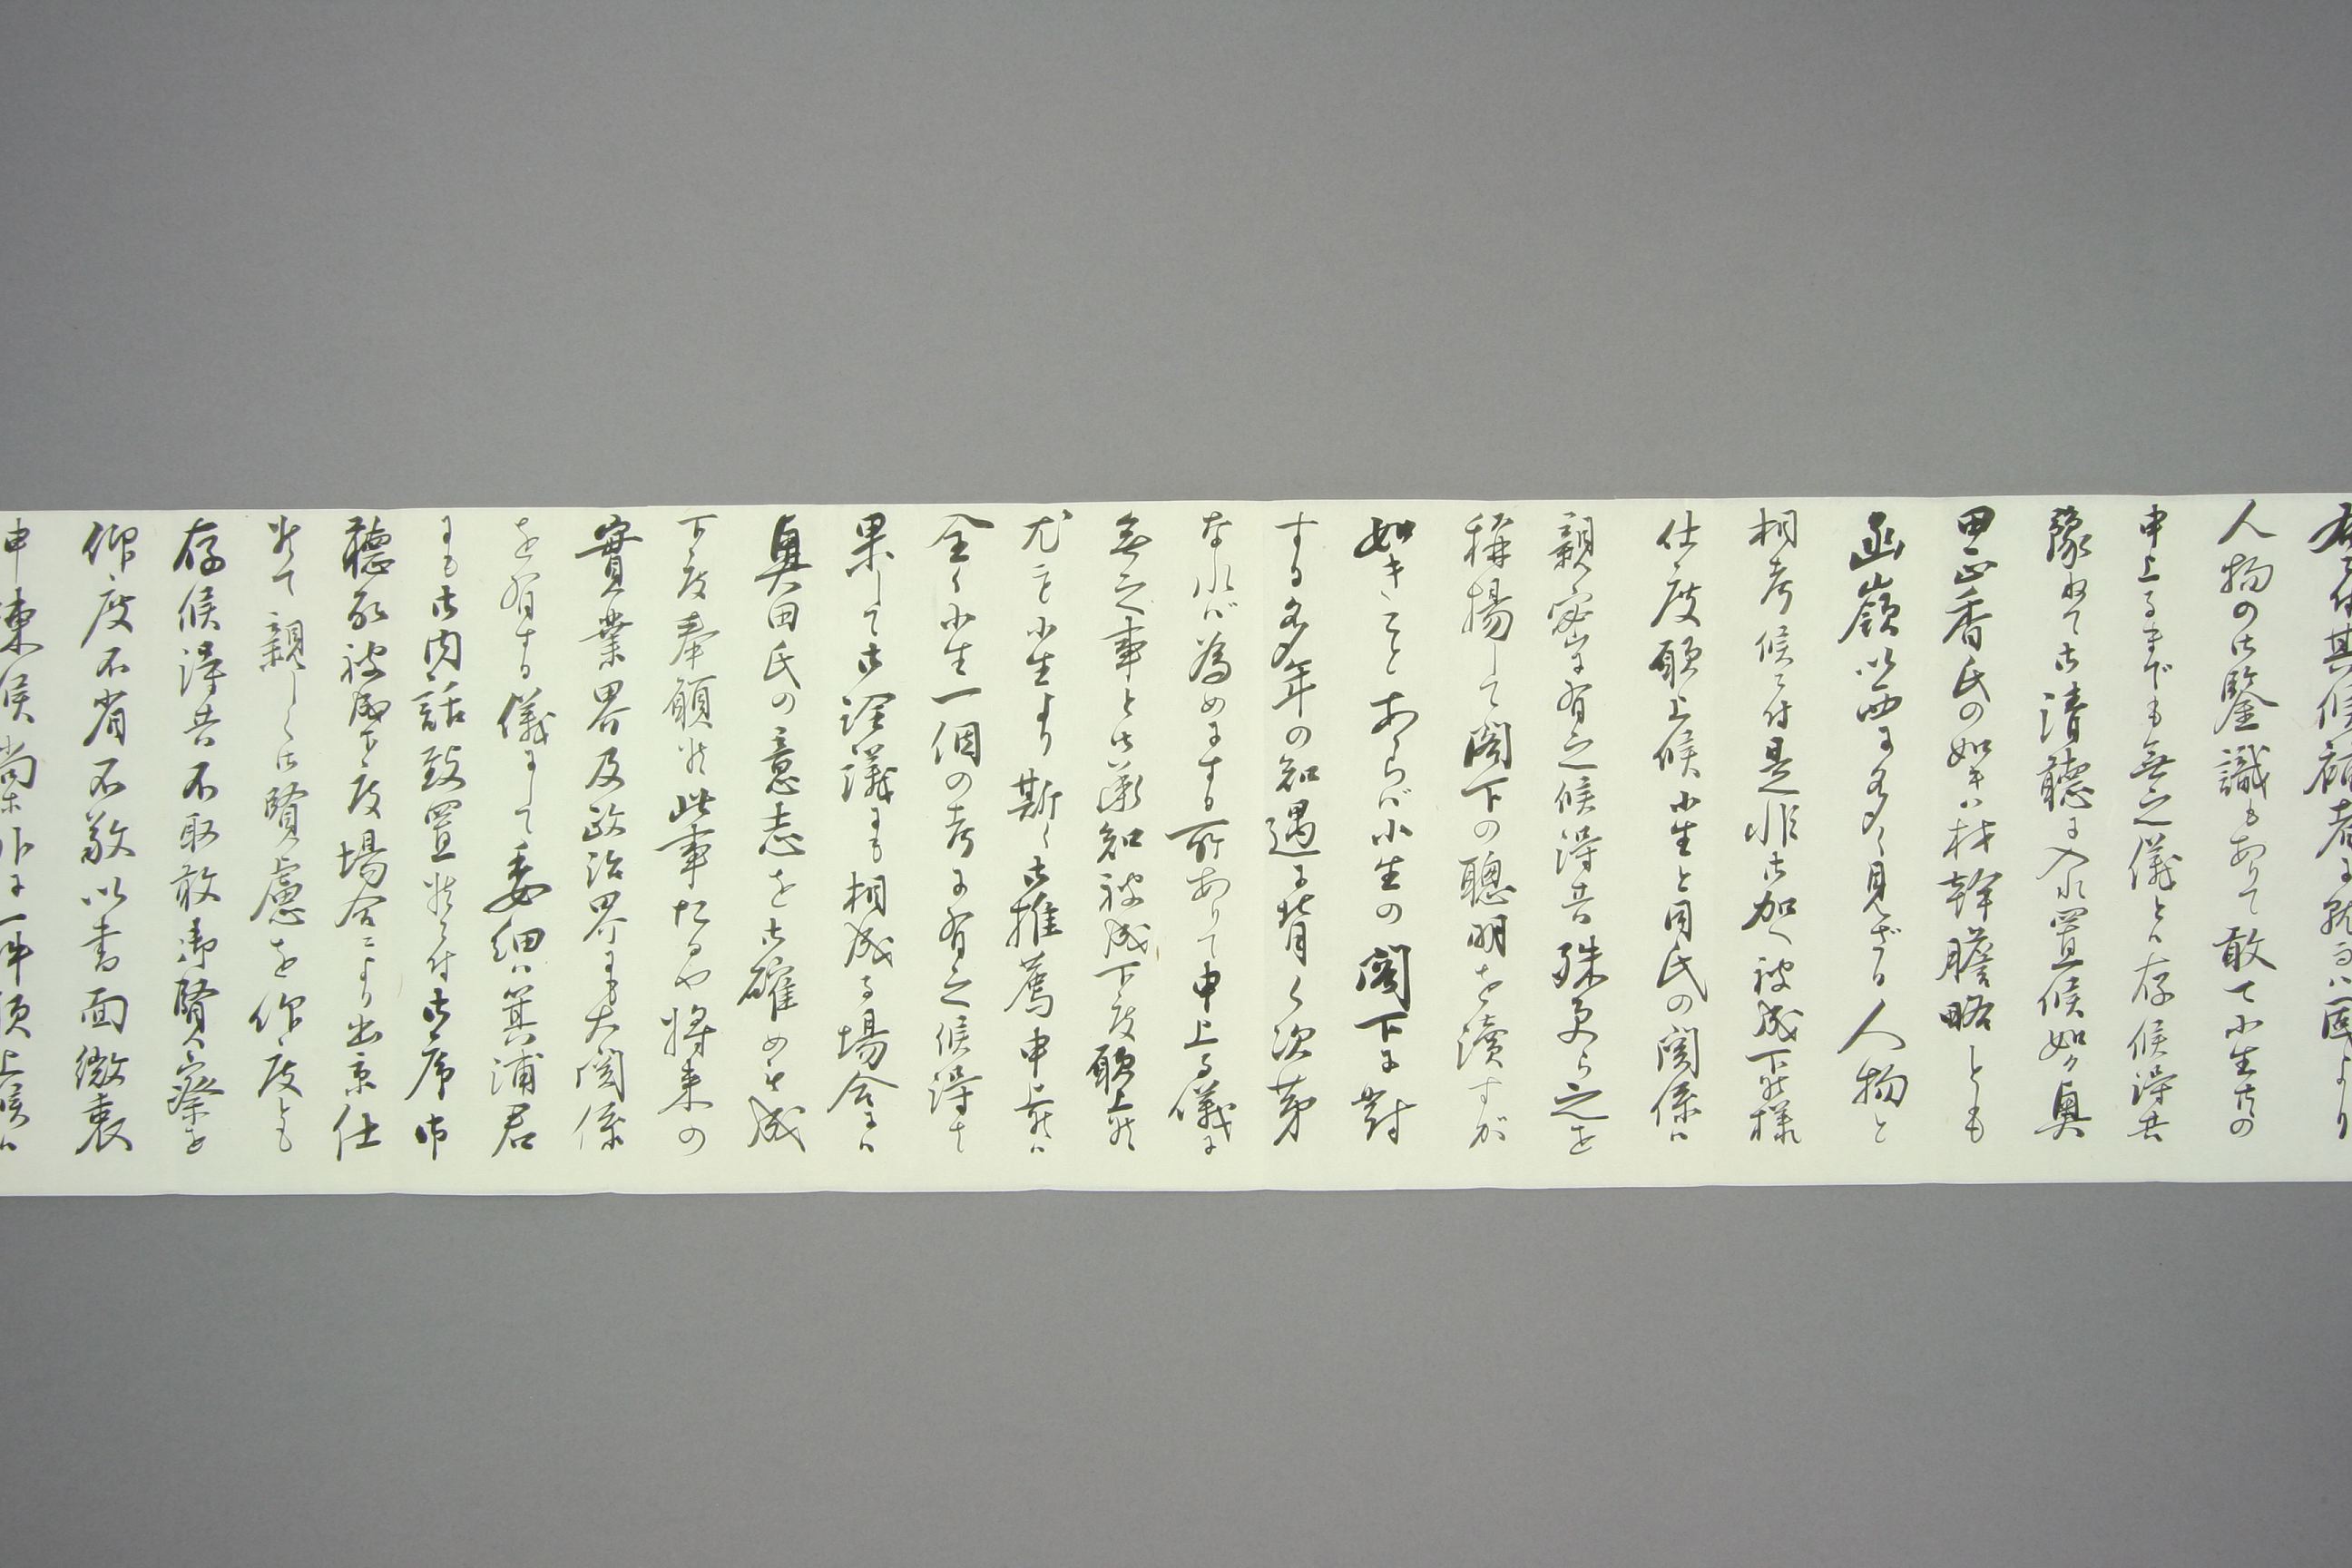 有之付其候補者に就るハ固より
人物の御鑒識もありて敢て小生共の
申上るまでも無之儀とハ存候得共
豫ねて御清聴に入れ置候如ク奥
田正香氏の如キハ材幹膽略とも
函嶺以西に多く見ざる人物と
相考候ニ付是非御加へ被成下候様
仕度願上候小生と同氏の関係ハ
親密に有之候得共殊更ら之を
稱揚して閣下の聰明を瀆すが
如きことあらバ小生の閣下に對
する多年の知遇に背く次第
なれバ為めにする所ありて申上る儀に
無之事と御承知被成下度願上候
尤も小生より斯く御推薦申上候ハ
全く小生一個の考に有之候得て
果して御詮議にも相成る場合にハ
奥田氏の意志を御確めも成
下度奉願候此事たるや将来の
實業界及政治界にも大関係
を有する儀にして委細ハ箕浦君
にも御内話致置候ニ付御序ニ御
聴取被成下度場合ニより出京仕
候て親しく御賢慮を仰度とも
存候得共不取敢御賢察を
仰度不省不敬以書面微衷
申陳候尚ホ外ニ一件願上候ハ